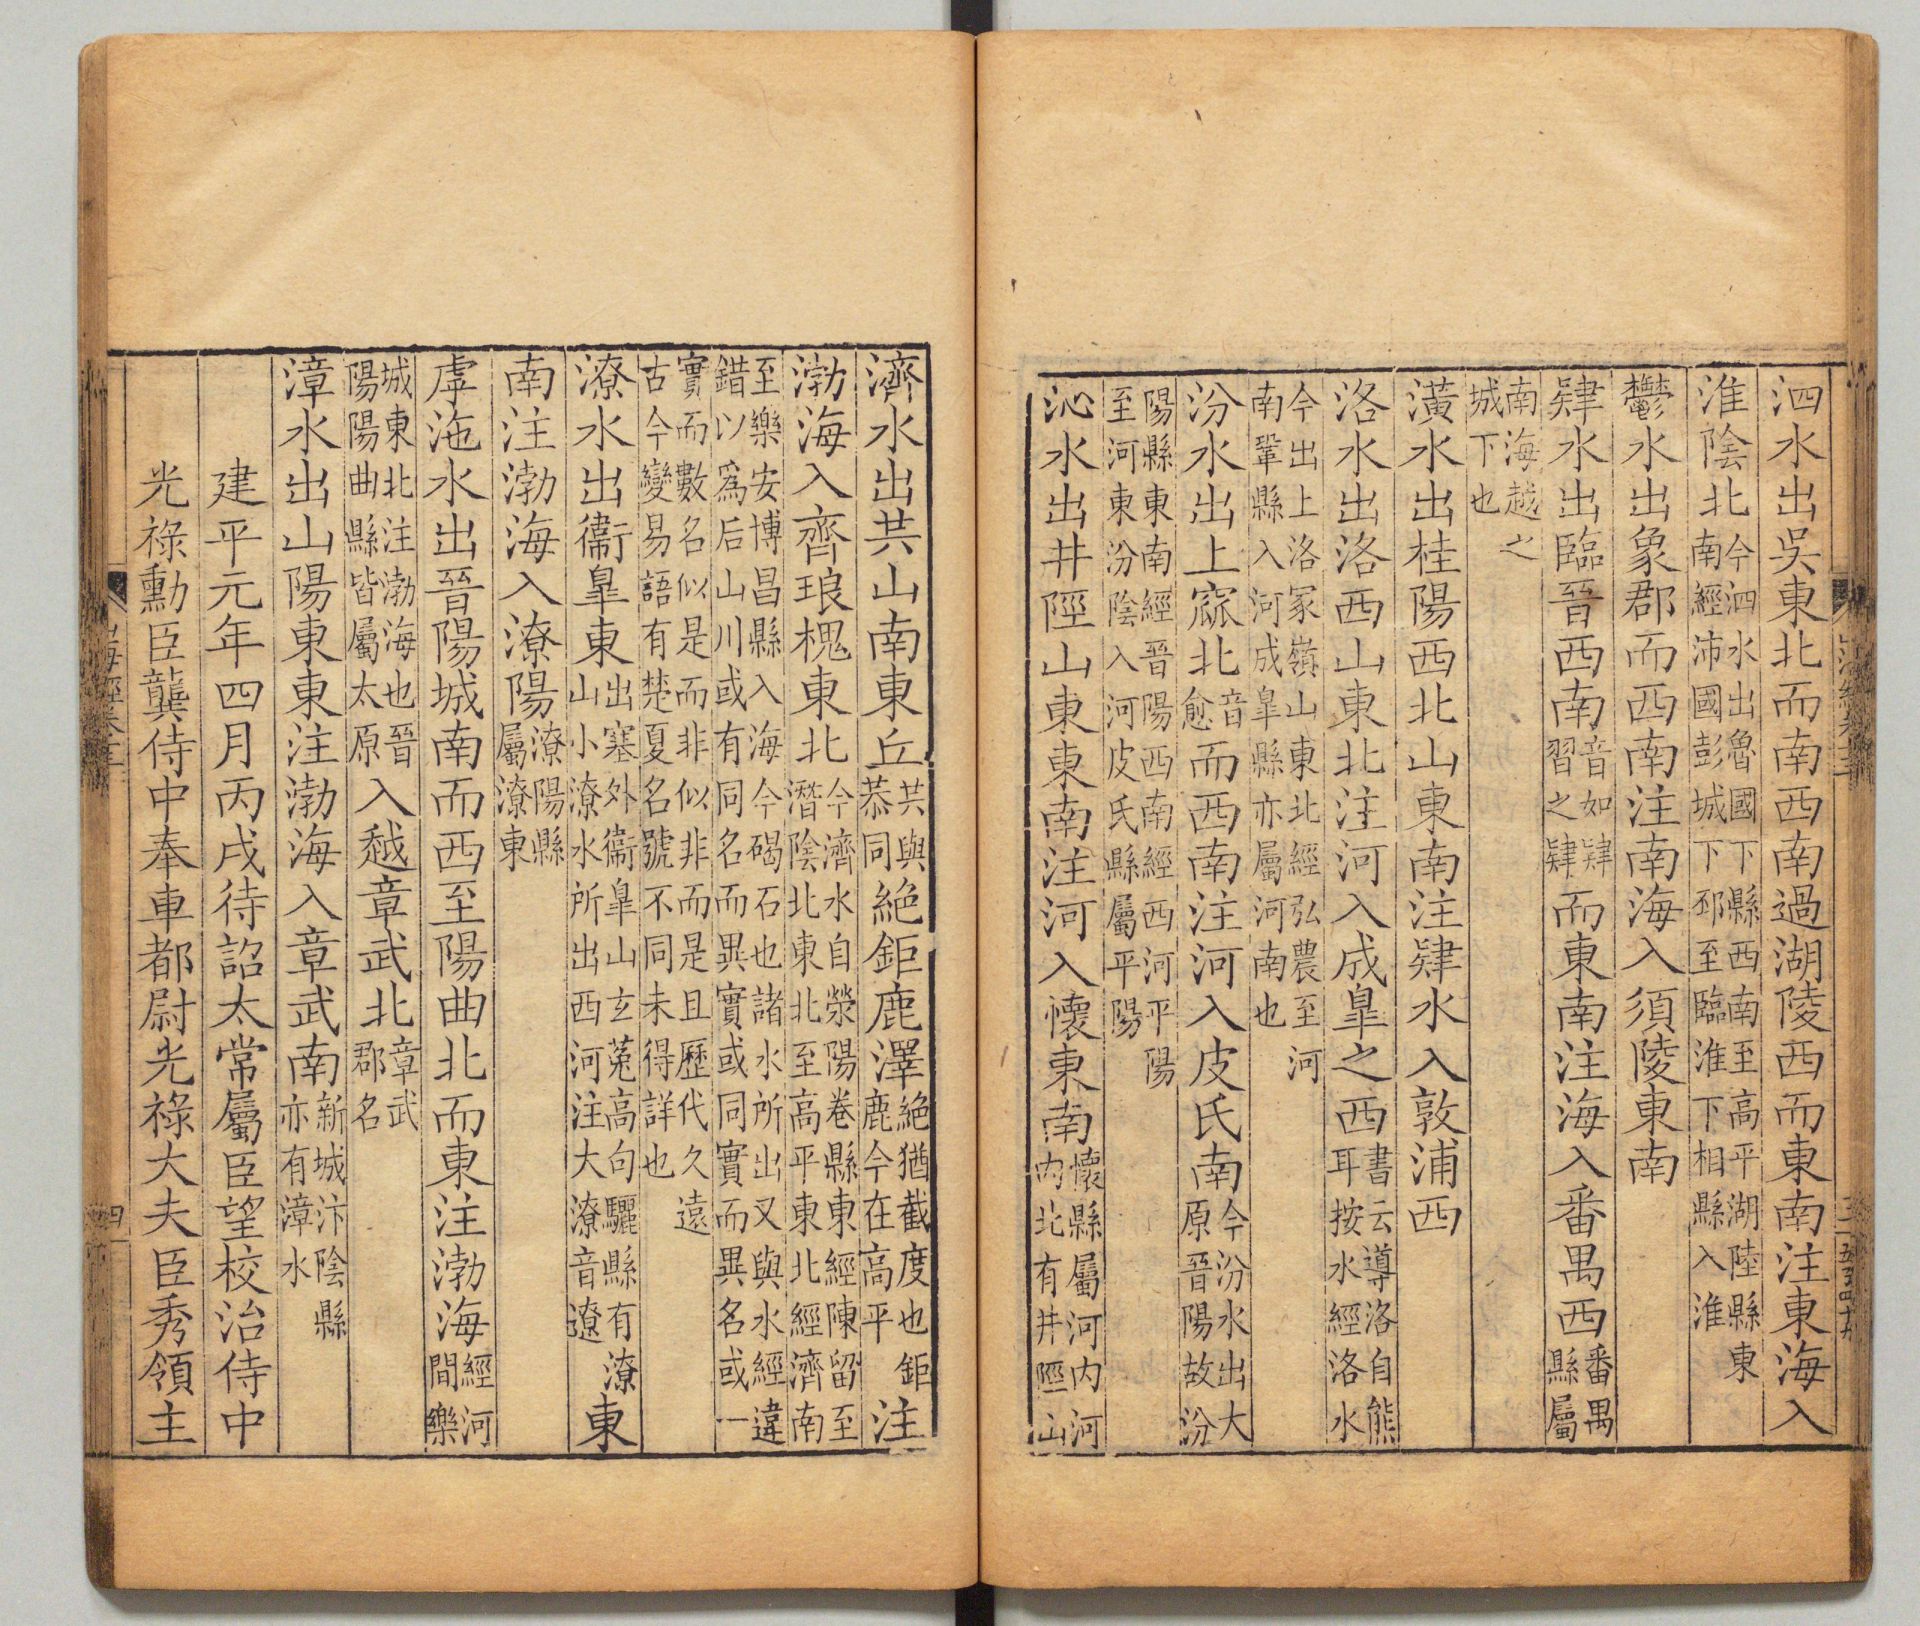 泗水出吳東北而南西南過湖陵西而東南注東海入
淮陰北今泗水出魯國下縣西南至高平湖陸縣東南經沛國彭城下邳至臨淮下相縣入淮
鬱水出象郡而西南注南海入須陵東南
肄水出臨晉西南音如肄習之肄而東南注海入番禺西番禺縣屬
南海越之城下也
潢水出桂陽西北山東南注肄水入敦浦西
洛水出洛西山東北注河入成臯之西書云導洛自熊耳按水經洛水
今出上洛冢嶺山東北經弘農至河南鞏縣入河成臯縣亦屬河南也
汾水出上窳北音愈而西南注河入皮氏南今汾水出大原晉陽故汾
陽縣東南經晉陽西南經西河平陽至河東汾陰入河皮氏縣屬平陽
沁水出井陘山東東南注河入懷東南懷縣屬河內河內北有井陘山
濟水出共山南東丘共與恭同絶鉅鹿澤絶猶截度也鉅鹿今在高平注
渤海入齊琅槐東北今濟水自滎陽卷縣東經陳留至潛陰北東北至高平東北經濟南
至樂安博昌縣入海今碣石也諸水所出又與水經違錯以爲后山川或有同名而異實或同實而異名或一
實而數名似是而非似非而是且歷代久遠古今變易語有楚夏名號不同未得詳也
潦水出衞臯東出塞外衞臯山玄菟高句驪縣有潦山小潦水所出西河注大潦音遼東
南注渤海入潦陽潦陽縣屬潦東
虖沲水出晉陽城南而西至陽曲北而東注渤海經河間樂
城東北注渤海也晉陽陽曲縣皆屬太原入越章武北章武郡名
漳水出山陽東東注渤海入章武南新城汴陰縣亦有漳水
建平元年四月丙戌待詔太常屬臣望校治侍中
光祿勳臣龔侍中奉車都尉光祿大夫臣秀領主
山海經卷十三
四